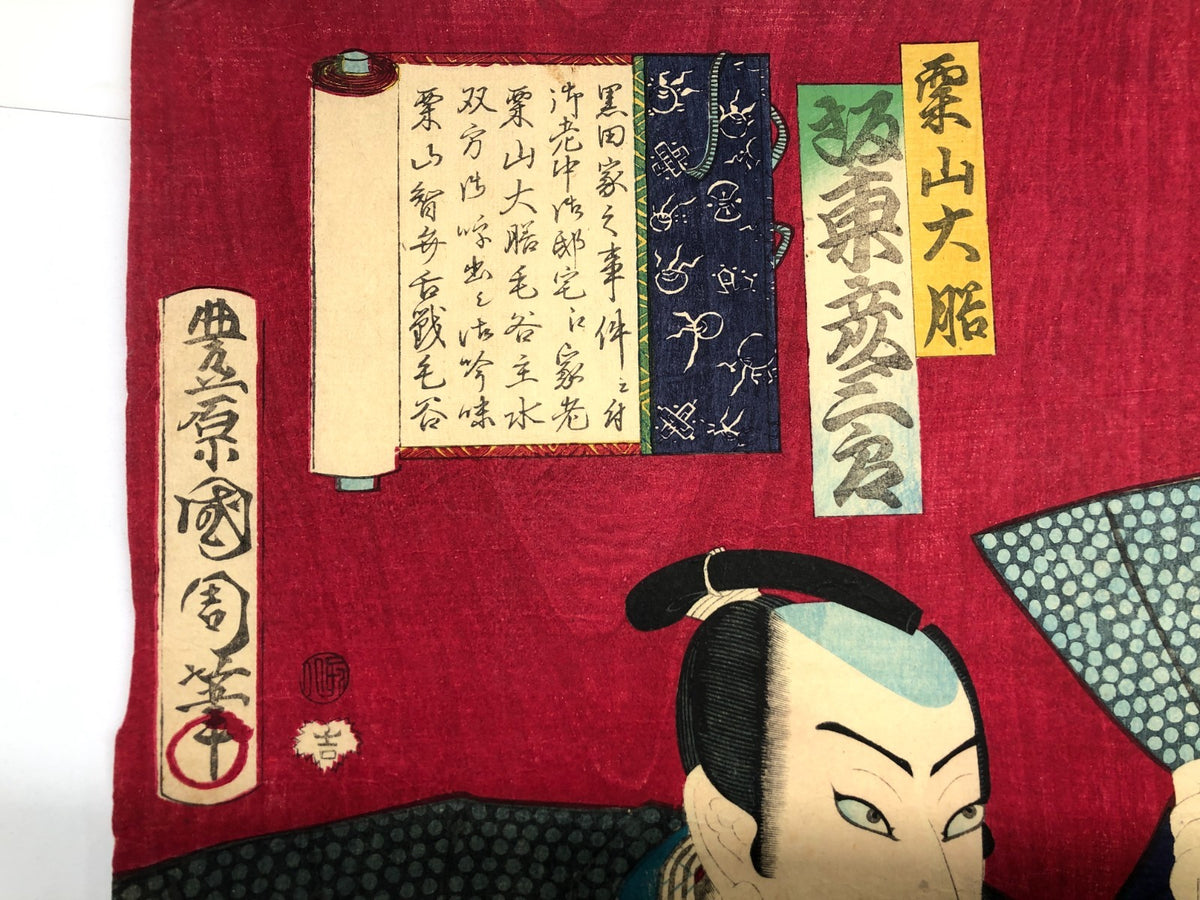 栗山大膳
坂東彦三郎
黒田家之事件ニ付
御老中御邸宅江家老
栗山大膳毛谷主水
双方御呼出シ御吟味
栗山智弁舌戰毛谷
豊原國周筆
吉